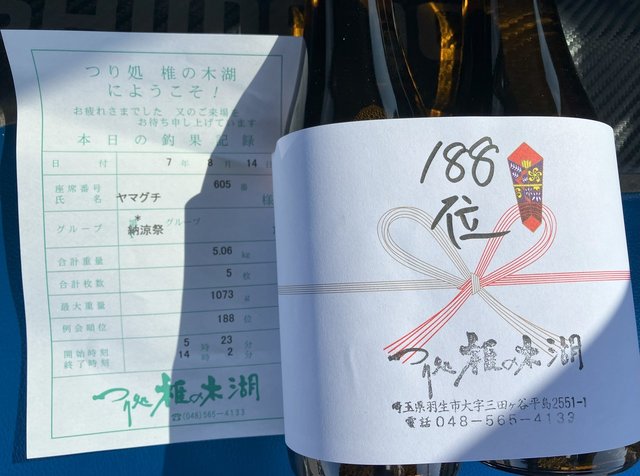 つり処 椎の木湖
にようこそ!
お疲れさまでした 又のご来場を
お待ち申し上げています
本日の釣果記録
日 付 7 年 8 月 14 日
座席番号 605 番
氏 名 ヤマグチ 様
グループ 納涼祭 グループ
合計重量 5.06 kg
合計枚数 5 枚
最大重量 1073 g
例会順位 188 位
開始時刻 5 時 23 分
終了時刻 14 時 2 分
つり処 椎の木湖
☎(048)565-4133
188
位
つり処 椎の木湖
埼玉県羽生市大字三田ヶ谷平島2551-1
電話 048-565-4133